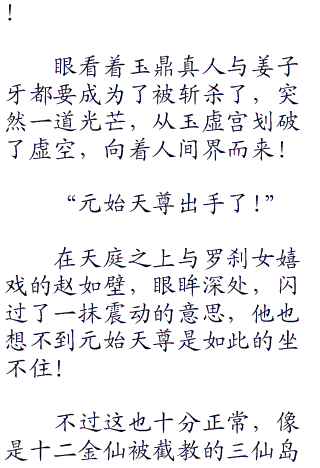 ！
眼看着玉鼎真人与姜子
牙都要成为了被斩杀了，突
然一道光芒，从玉虚宫划破
了虚空，向着人间界而来！
“元始天尊出手了！”
在天庭之上与罗刹女嬉
戏的赵如壁，眼眸深处，闪
过了一抹震动的意思，他也
想不到元始天尊是如此的坐
不住！
不过这也十分正常，像
是十二金仙被截教的三仙岛